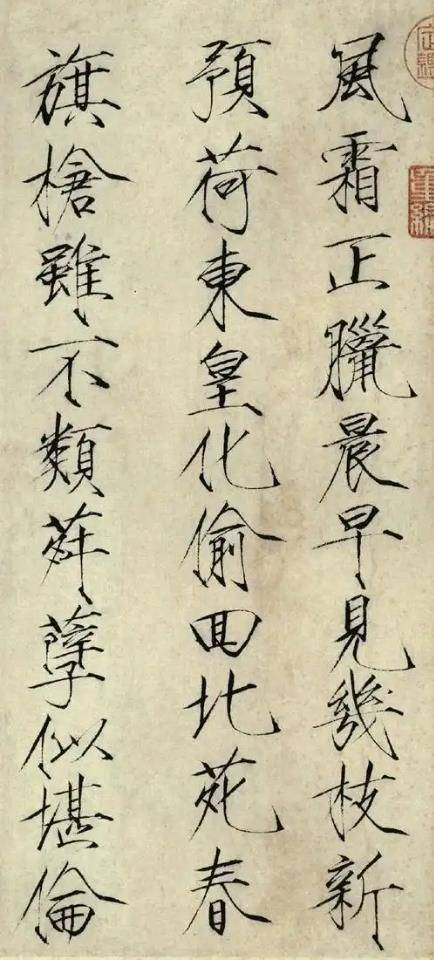 風霜正臘晨早見幾枝新
預荷東皇化偷囬北苑春
旗槍雖不類荈孽似堪倫